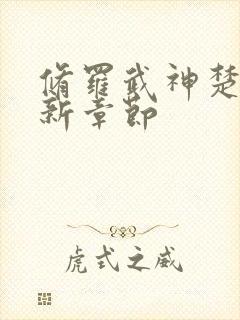 脩羅武神楚
新章節
虎式之威